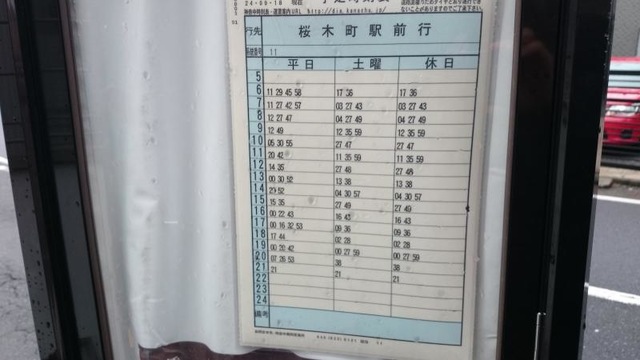 24-09-10
行先 桜木町駅前行
系統番号 11
平日 土曜 休日
5
6 11 29 45 58 17 36 17 36
7 11 27 42 57 03 27 43 03 27 43
8 12 27 47 04 27 49 04 27 49
9 12 49 12 35 59 12 35 59
10 05 30 55 27 47 27 47
11 20 42 11 35 59 11 35 59
12 14 35 27 48 27 48
13 00 30 52 13 38 13 38
14 52 04 30 57 04 30 57
15 15 35 27 49 27 49
16 00 22 43 16 43 16 43
17 00 16 32 53 09 36 09 36
18 17 44 02 28 02 28
19 00 20 42 00 27 59 00 27 59
20 07 28 53 38 38
21 21 21 21
22
23
24
備考